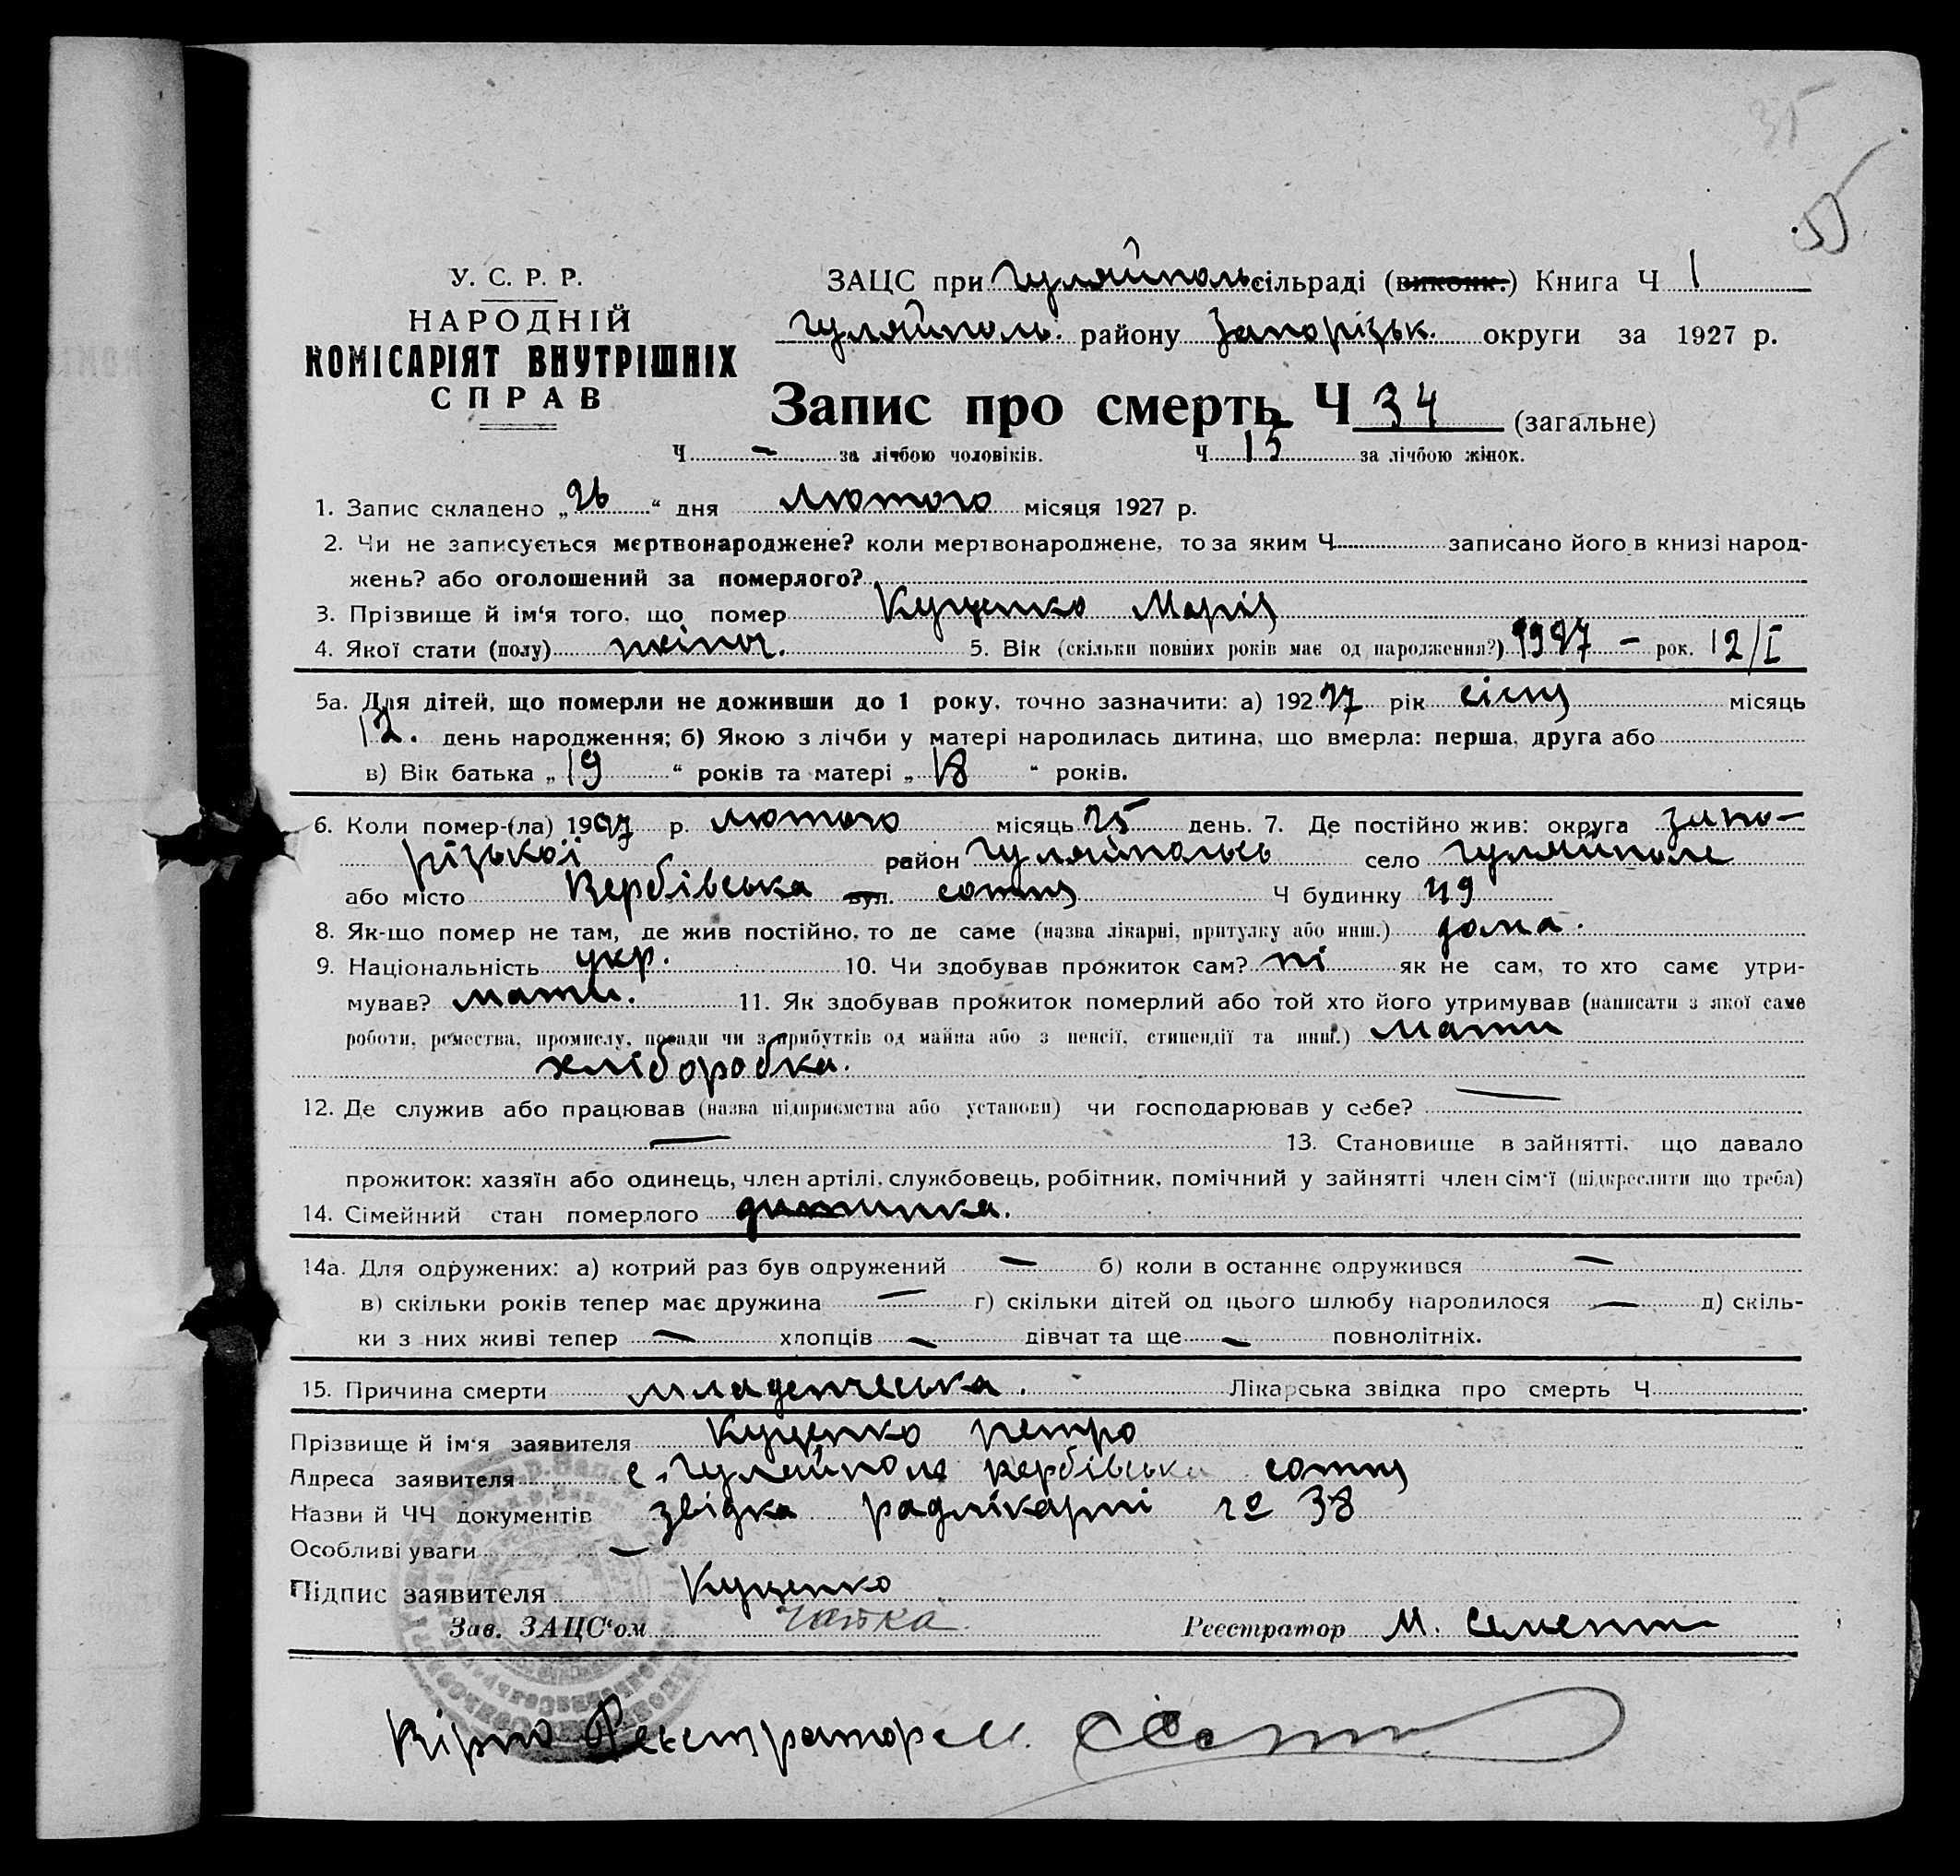 35
У. С. Р. Р.
НАРОДНІЙ
КОМІСАРІЯТ ВНУТРІШНІХ
СПРАВ
ЗАЦС при Гуляйполь сільраді (виконк.) Книга Ч 1
Гуляйполь. району Запорізьк. округи за 1927 р.
Запис про смерть Ч 34 (загальне)
Ч - за лічбою чоловіків. Ч 15 за лічбою жінок.
1. Запис складено „26“ дня лютого місяця 1927 р.
2. Чи не записується мертвонароджене? коли мертвонароджене, то за яким Ч записано його в книзі народ-
жень? або оголошений за померлого?
3. Прізвище й ім‘я того, що помер Куценко Марія
4. Якої стати (полу) жіноч. 5. Вік (скільки повних років має од народження?) 1927 – рок. 12/I
5а. Для дітей, що померли не доживши до 1 року, точно зазначити: а) 1927 рік січня місяць
12. день народження; б) Якою з лічби у матері народилась дитина, що вмерла: перша, друга або
в) Вік батька „19“ років та матері „18“ років.
6. Коли помер-(ла) 1927 р. лютого місяць 25 день. 7. Де постійно жив: округа Запо-
різької район Гуляйпольсь село Гуляйполе
або місто Вербівська вул. сотня Ч будинку 49
8. Як-що помер не там, де жив постійно, то де саме (назва лікарні, притулку або инш.) дома.
9. Національність укр. 10. Чи здобував прожиток сам? ні як не сам, то хто саме утри-
мував? мати. 11. Як здобував прожиток померлий або той хто його утримував (написати з якої саме
роботи, ремества, промислу, посади чи з прибутків од майна або з пенсії, стипендії та инш.) мати
хліборобка.
12. Де служив або працював (назва підприємства або установи) чи господарював у себе? —
— 13. Становище в зайнятті, що давало
прожиток: хазяїн або одинець, член артілі, службовець, робітник, помічний у зайнятті член сім‘ї (підкреслити що треба)
14. Сімейний стан померлого дитинка.
14а. Для одружених: а) котрий раз був одружений — б) коли в останнє одружився —
в) скільки років тепер має дружина — г) скільки дітей од цього шлюбу народилося — д) скіль-
ки з них живі тепер — хлопців — дівчат та ще — повнолітніх.
15. Причина смерти младенчеська. Лікарська звідка про смерть Ч
Прізвище й ім‘я заявителя Куценко Петро
Адреса заявителя с. Гуляйполе Вербівська сотня
Назви й ЧЧ документів звідка радлікарні № 38
Особливі уваги —
Підпис заявителя Куценко
Зав. ЗАЦС‘ом Реєстратор М.
Вірно Реєстратор М.